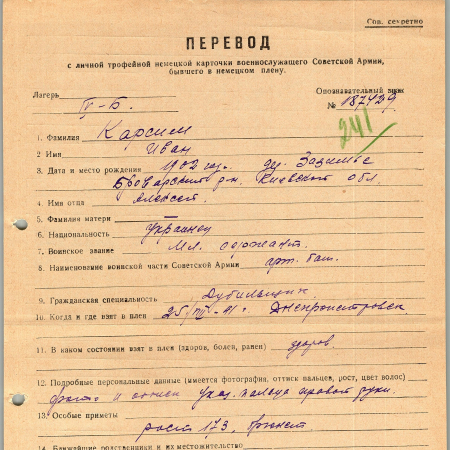 Сов. секретно
ПЕРЕВОД
с личной трофейной немецкой карточки военнослужащего Советской Армии,
бывшего в немецком плену.
Лагерь IV-Б. Опознавательный знак
№ 187429
241
1. Фамилия Карсим
2 Имя Иван
3. Дата и место рождения 1902 год. дер. Зазимье
Броварский р-н. Киевской обл
4. Имя отца Алексей.
5. Фамилия матери
6. Национальность украинец
7. Воинское звание Мл. сержант.
8. Наименование воинской части Советской Армии арт. бат.
9. Гражданская специальность Дубильщик
10. Когда и где взят в плен 25/VIII-41г. Днепропетровск
11. В каком состоянии взят в плен (здоров, болен, ранен) здоров.
12. Подробные персональные данные (имеется фотография, оттиск пальцев, рост, цвет волос)
фото и оттиск указ. пальца правой руки
13. Особые приметы
рост 173, брюнет.
14. Ближайшие родственники и их местожительство